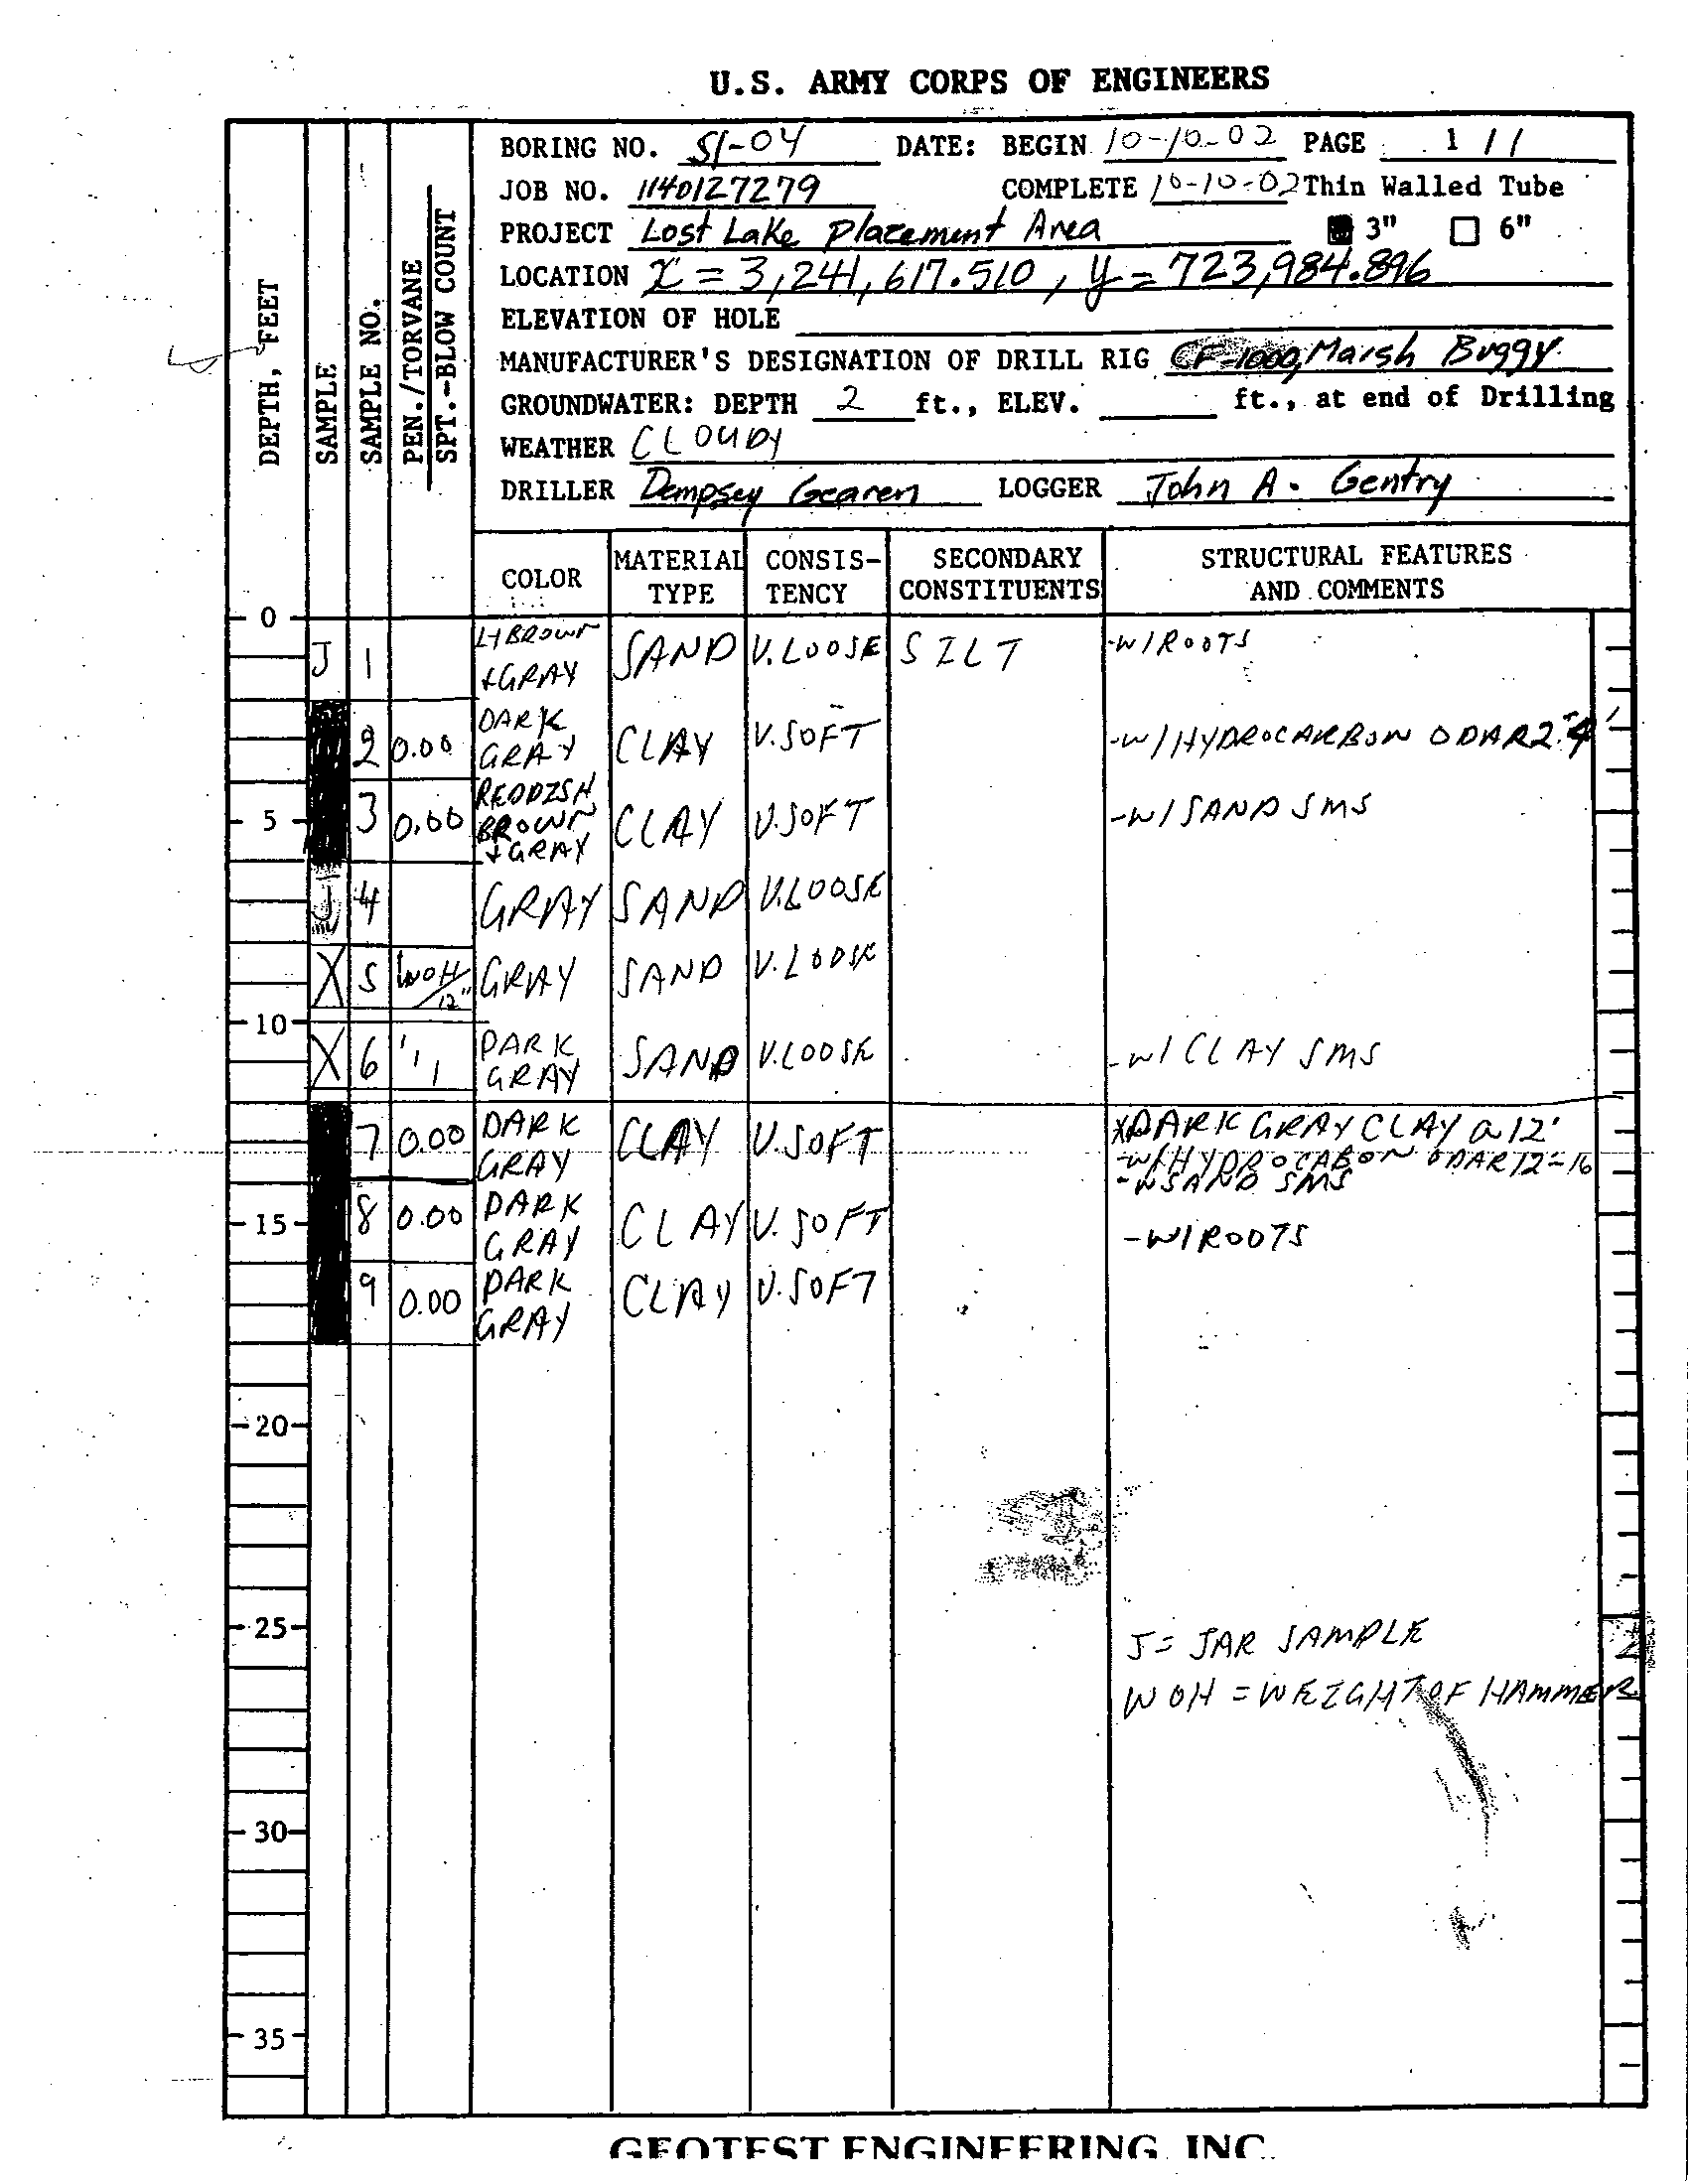 U.S. ARMY CORPS OF ENGINEERS
BORING NO. SI-04 DATE: BEGIN 10-10-02 PAGE 1 / 1
JOB NO. 1140127279 COMPLETE 10-10-02 Thin Walled Tube
PROJECT Lost Lake Placement Area 3" 6"
LOCATION X = 3,241,617.510, y = 723,984.896
ELEVATION OF HOLE
MANUFACTURER'S DESIGNATION OF DRILL RIG CF-1000, Marsh Buggy
GROUNDWATER: DEPTH 2 ft., ELEV. ft., at end of Drilling
WEATHER CLOUDY
DRILLER Dempsey Gearen LOGGER John A. Gentry
DEPTH, FEET
SAMPLE
SAMPLE NO.
PEN./TORVANE
SPT.-BLOW COUNT
COLOR MATERIAL TYPE CONSIS-TENCY SECONDARY CONSTITUENTS STRUCTURAL FEATURES AND COMMENTS
0
J 1 LT BROWN +GRAY SAND V.LOOSE SILT -W/ROOTS
2 0.00 DARK GRAY CLAY V.SOFT -W/HYDROCARBON ODAR 2'-4'
5
3 0.00 REDDISH BROWN +GRAY CLAY V.SOFT -W/SAND SMS
J 4 GRAY SAND V.LOOSE
X 5 WOH/12" GRAY SAND V.LOOSE
10
X 6 1/1 DARK GRAY SAND V.LOOSE -W/CLAY SMS
7 0.00 DARK GRAY CLAY V.SOFT *DARK GRAY CLAY @ 12'
-W/HYDROCABON ODAR 12-16
-W SAND SMS
15
8 0.00 DARK GRAY CLAY V.SOFT -W/ROOTS
9 0.00 DARK GRAY CLAY V.SOFT
20
25
J = JAR SAMPLE
WOH = WEIGHT OF HAMMER
30
35
GEOTEST ENGINEERING, INC.